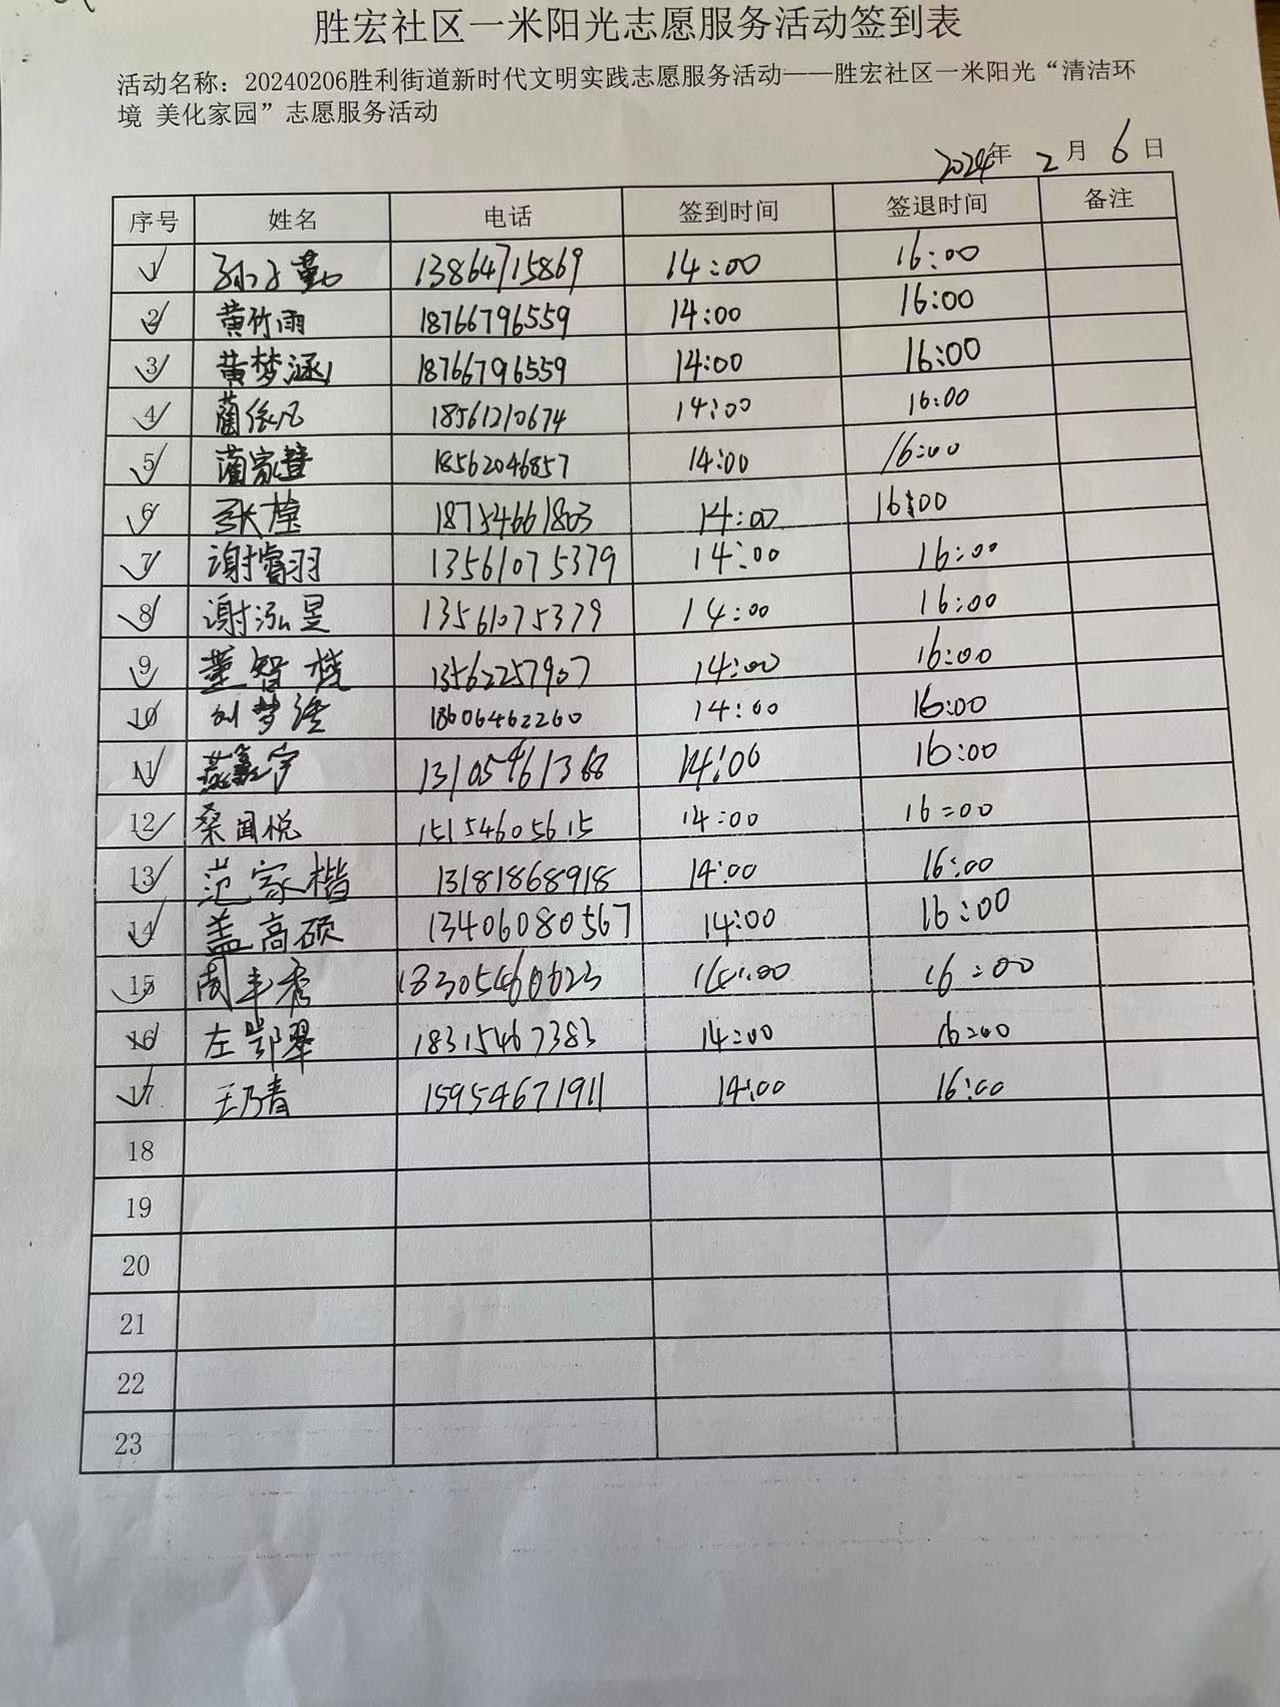 胜宏社区一米阳光志愿服务活动签到表
活动名称：20240206胜利街道新时代文明实践志愿服务活动——胜宏社区一米阳光“清洁环
境 美化家园”志愿服务活动
2024年 2月 6日
序号 姓名 电话 签到时间 签退时间 备注
1 孙子勤 13864715869 14:00 16:00
2 黄竹雨 18766796559 14:00 16:00
3 黄梦涵 18766796559 14:00 16:00
4 蔺依凡 18561210674 14:00 16:00
5 蔺家慧 18562046857 14:00 16:00
6 张 18754661803 14:00 16:00
7 谢睿羽 13561075379 14:00 16:00
8 谢泓昱 13561075379 14:00 16:00
9 董智 13562257907 14:00 16:00
10 刘梦 18606462260 14:00 16:00
11 燕鑫宇 13105461368 14:00 16:00
12 桑闻悦 15154605615 14:00 16:00
13 范家楷 13181868918 14:00 16:00
14 盖高硕 13406080567 14:00 16:00
15 周丰秀 18305460623 14:00 16:00
16 左翠 18315467383 14:00 16:00
17 王乃青 15954671911 14:00 16:00
18
19
20
21
22
23